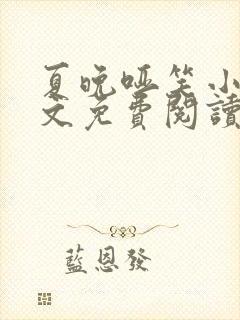 夏晚哑笑小
文免費閱讀
藍恩發